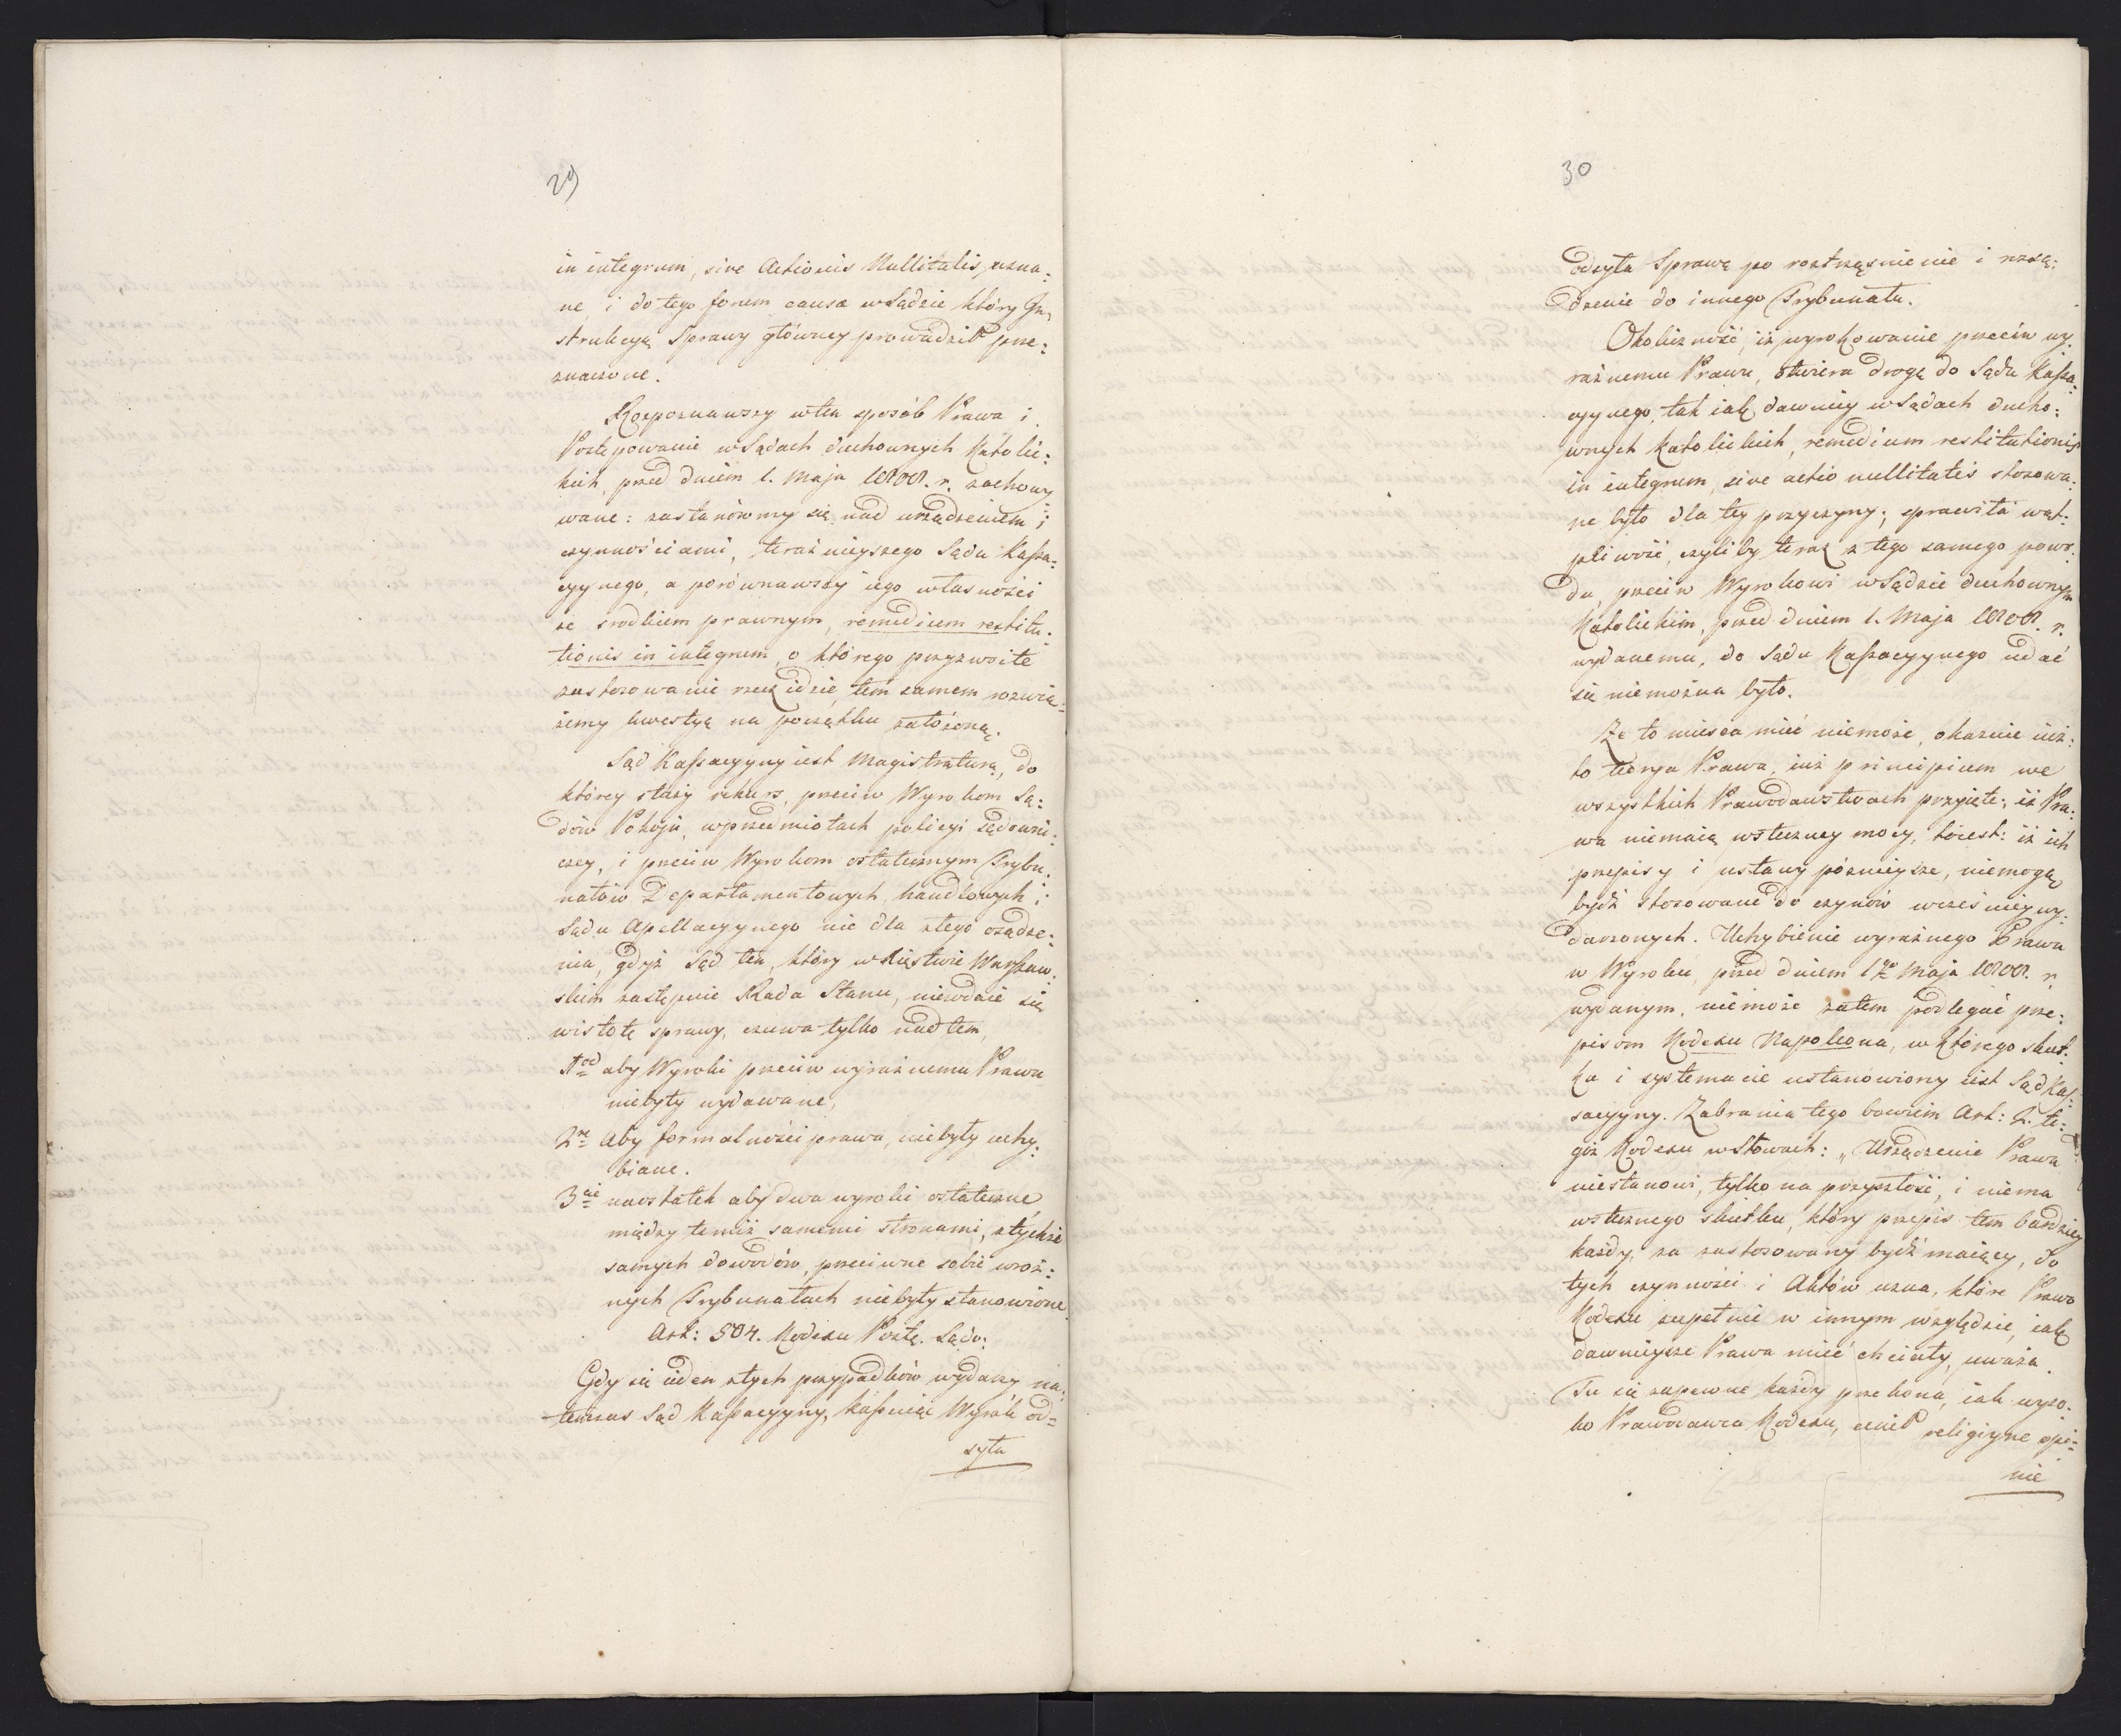 29
in integrum, sive Actionis Nullitatis, uzna:
ne, i do tego forum causæ w Sądzie który In:
strukcyą Sprawy główney prowadził prze:
znaczone.
Rozpoznawszy w ten sposób Prawa i
Postępowanie w Sądach duchownych Katolic:
kich, przed dniem 1. Maja 1808. r. zachowy
wane: zastanówmy się nad urządzeniem i
czynnościami, teraźnieyszego Sądu Kassa:
cyynego, a porównawszy iego własności
ze srodkiem prawnym, remedium restitu:
tionis in integrum, o którego przyzwoite
zastosowanie rzecz idzie, tem samem rozwią:
żemy kwestyą na początku założoną.
Sąd Kassacyyny iest Magistraturą, do
którey służy rekurs, przeciw Wyrokom Są:
dów Pokoju, w przedmiotach policyi sądowni:
czey, i przeciw Wyrokom ostatecznym Trybu:
nałów Departamentowych, handlowych i
Sądu Apellacyynego nie dla złego osądze:
nia, gdyż Sąd ten, który w Xięstwie Warszaw:
skim zastępuie Rada Stanu, niewdaie się
w istotę sprawy, czuwa tylko nad tem,
1od aby Wyroki przeciw wyraźnemu Prawu
niebyły wydawane,
2re Aby formalności prawa, niebyły uchy:
biane.
3cie naostatek aby dwa wyroki ostateczne,
między temiż samemi stronami, z tychże
samych dowodów, przeciwne sobie w róż:
nych Trybunałach niebyły stanowione.
Art: 504. Kodexu Postę. Sądo:
Gdy się ieden z tych przypadków wydarzy na:
tenczas Sąd Kassacyyny, kassuiąc Wyrok od:
syła
30
odsyła Sprawę po roztrząśnienie i rozsą:
dzenie do innego Trybunału.
Okoliczność, iż wyrokowanie przeciw wy:
raźnemu Prawu, otwiera drogę do Sądu Kassa:
cyynego, tak iak dawniey w Sądach ducho:
wnych Katolickich, remedium restitutionis
in integrum, sive actio nullitatis stosowa:
ne było dla tey przyczyny; sprawiła wąt:
pliwość, czyliby teraz z tego samego powo:
du, przeciw Wyrokowi w Sądzie duchownym
Katolickim, przed dniem 1. Maja 1808. r.
wydanemu, do Sądu Kassacyynego udać
się niemożna było.
Że to mieysca mieć niemoże, okazuie iuż:
to teorya Prawa, iuż principium we
wszystkich Prawodawstwach przyięte; iż Pra:
wa niemaią wsteczney mocy, to iest: iż ich
przepisy i ustawy późnieysze, niemogą
bydź stosowane do czynów wcześniey wy:
darzonych. Uchybienie wyraźnego Prawa
w Wyroku, przed dniem 1go Maja 1808. r.
wydanym, niemoże zatem podlegać prze:
pisom Kodexu Napoleona, w którego skut:
ku i systemacie ustanowiony iest Sąd Kas:
sacyyny. Zabrania tego bowiem Art: 2. te:
goż Kodexu w słowach: „ Urządzenie Prawa
niestanowi, tylko na przyszłość, i niema
wstecznego skutku, który przepis tem bardziey
każdy, za zastosowany bydź maiący, do
tych czynności i Aktów uzna, które Prawo
Kodexu zupełnie w innym względzie, iak
dawnieysze Prawa mieć chciały, uważa.
Tu się zapewne każdy przekona, iak wyso:
ko Prawodawca Kodexu, cenił religiyne opi:
nie